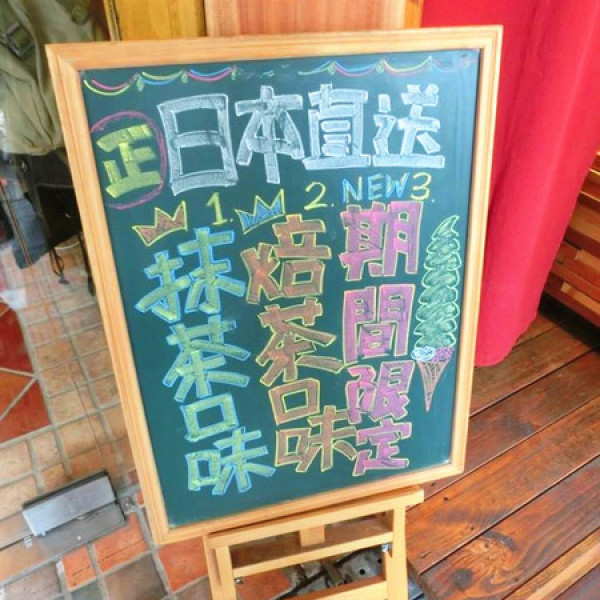 正 日本直送
1. 抹茶口味
2. 焙茶口味
NEW 3. 期間限定